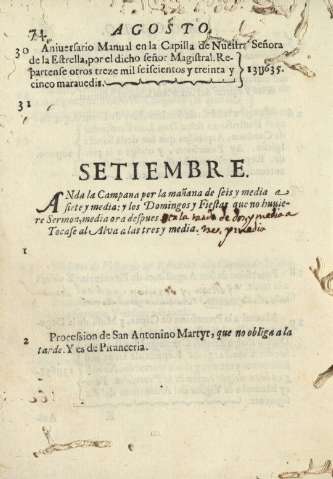 74. AGOSTO.
30 Aniversario Manual en la Capilla de Nuestra Señora
de la Estrella, por el dicho señor Magistral. Re-
partense otros treze mil seiscientos y treinta y
13 U 635.
cinco marauedis.
31
SETIEMBRE.
ANda la Campana por la mañana de seis y media a
siete y media: y los Domingos y Fiestas que no huuie-
re Sermon, media ora despues. en la tarde de dos y media a
Tocase al Alva a las tres y media. tres y media
1
2 Procession de San Antonino Martyr, que no obliga a la
tarde. Y es de Pitanceria.